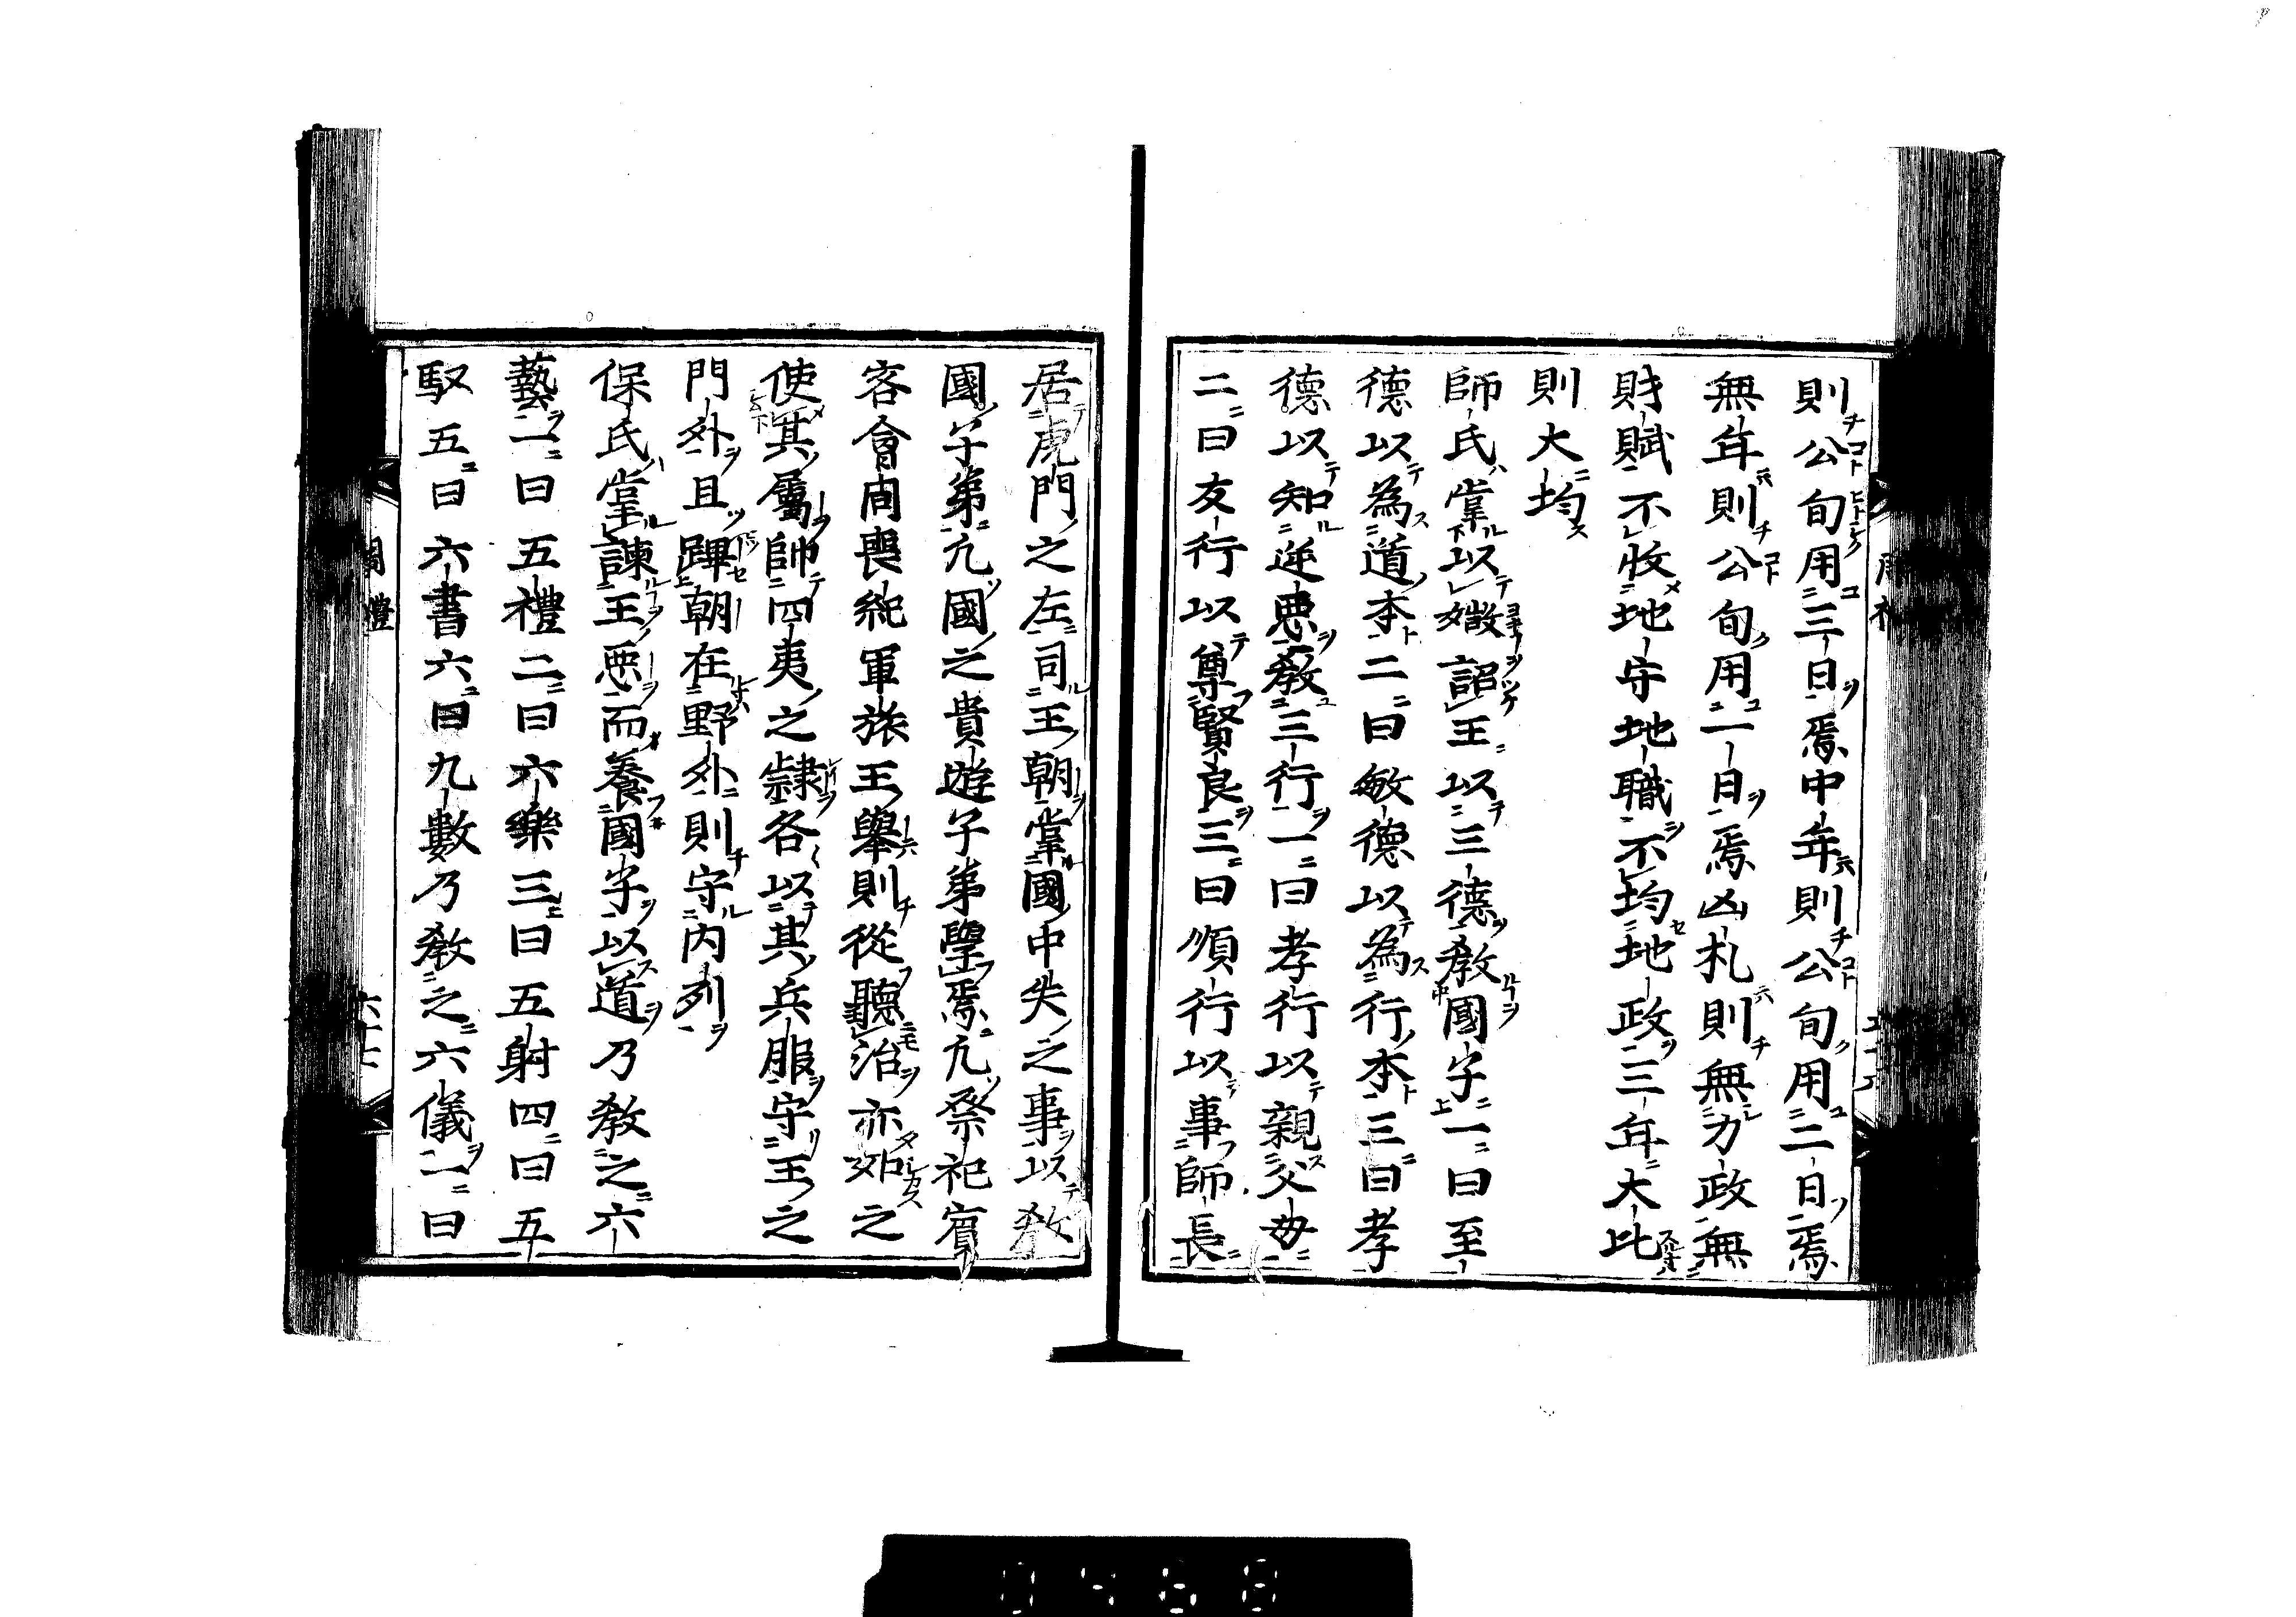 則公旬用三日焉中年則公旬用二日焉
無年則公旬用一日焉凶札則無力政無
財賦不收地守地職不均地政三年大比
則大均
師氏掌以媺詔王以三德教國子一曰至
德以為道本二曰敏德以為行本三曰孝
德以知逆惡教三行一曰孝行以親父母
二曰友行以尊賢良三曰順行以事師長
居虎門之左司王朝掌國中失之事以教
國子弟凢國之貴遊子弟學焉凢祭祀賓
客會同喪紀軍旅王舉則從聽治亦如之
使其屬帥四夷之隷各以其兵服守王之
門外且蹕朝在野外則守內列
保氏掌諫王惡而養國子以道乃教之六
藝一曰五禮二曰六樂三曰五射四曰五
馭五曰六書六曰九數乃教之六儀一曰
周禮